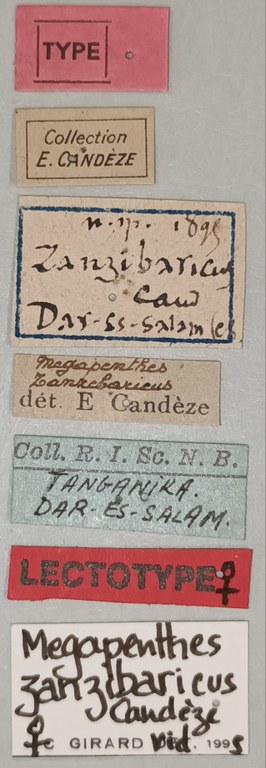 TYPE
Collection
E. CANDÈZE
1895
Zanzibaricus
Cand
Dar-Es-Salam
Megapenthes
Zanzebaricus
dét. E Candèze
Coll. R. I. Sc. N. B.
TANGANIKA.
DAR-ES-SALAM.
LECTOTYPE ♀
Megapenthes
zanzibaricus
Candèze
♀ C GIRARD vid. 1995